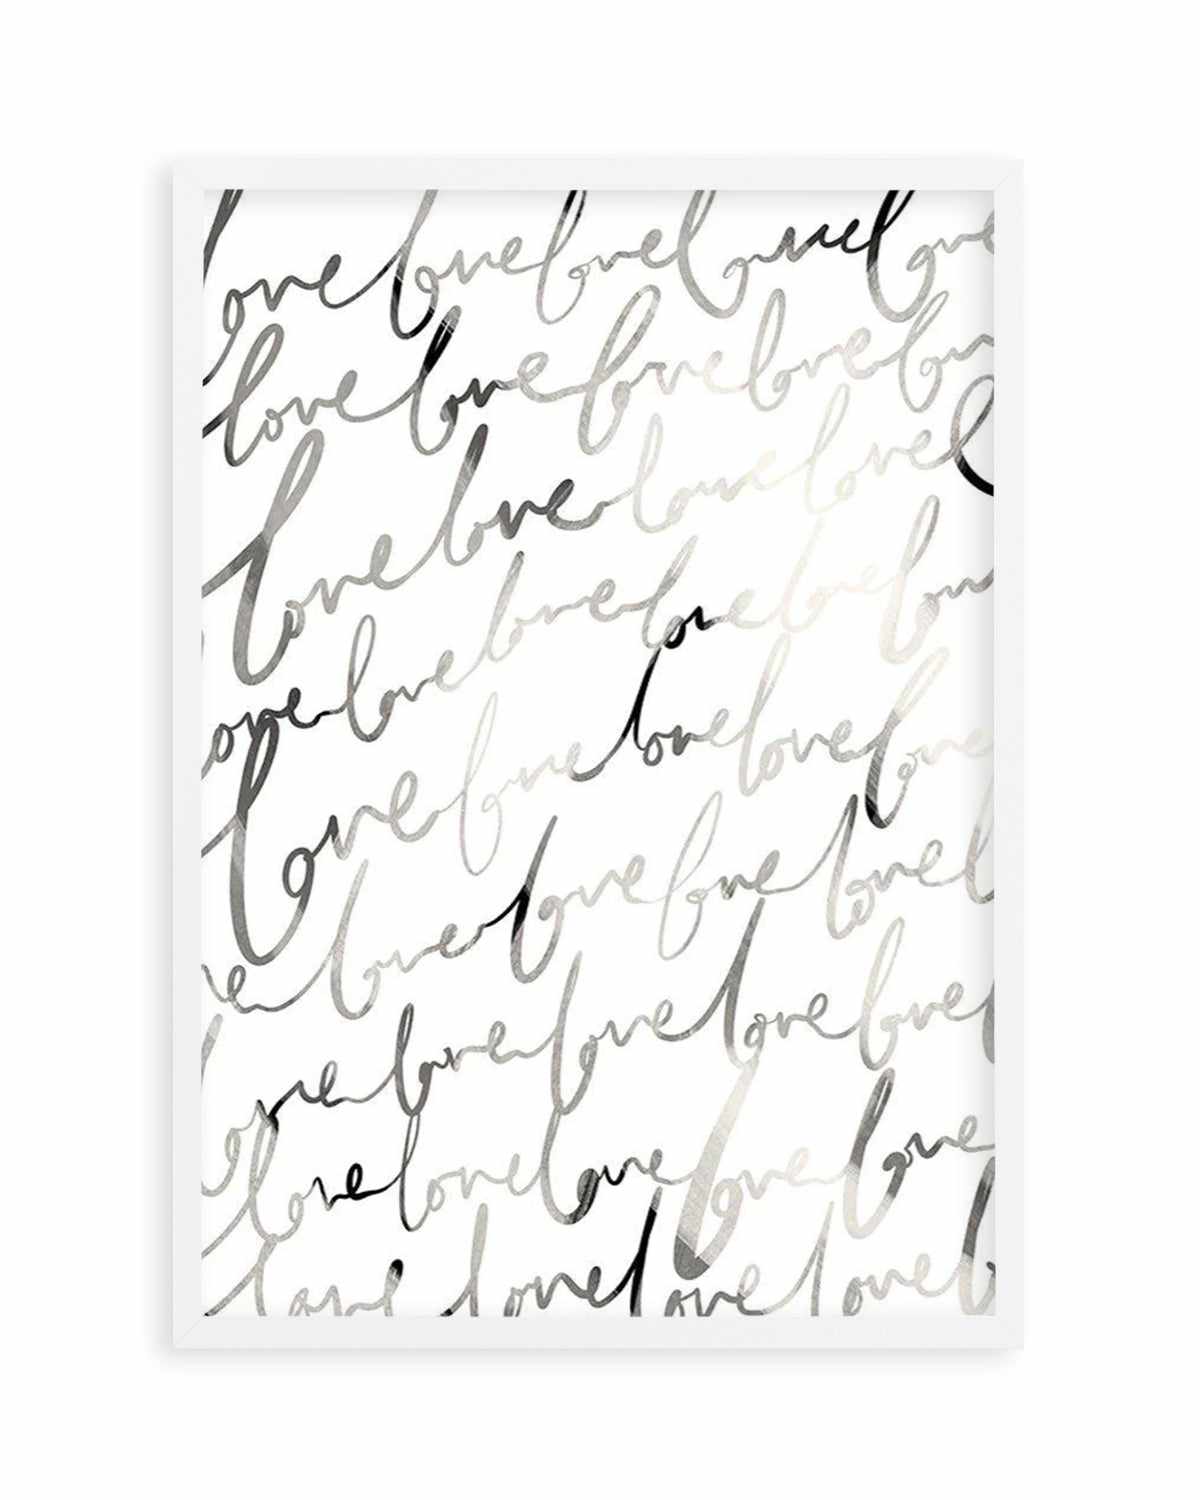 love love love love love love
love love love love lov
love love love love l
ove love love love love lov
love love love love love
e love love love love l
love love love love love l
love love love love love
love love love love l